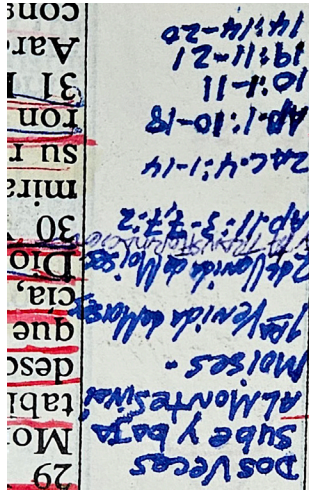 DOS VECES
SUBE Y BAJA
AL MONTE SINAI
MOISES.
1RA Venida de Moises
2 da Venida de Moises
LA TRANSFIGURACION
Ap. 11:3-7, 7:2
ZAC. 4:1-14
AP. 1:10-18
10:1-11
19:11-21
14:14-20
29
Mo
tabl
desc
que
cía,
Dio
30
mira
su r
ron
31
Aar
cons